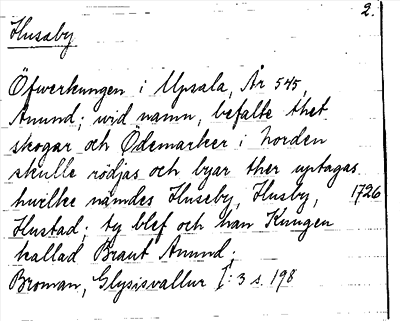 2.
Husaby
Öfwerkungen i Upsala, År 545,
Anund; wid namn, befalte thet
skogar och Ödemarker i Norden
skulle rödjas och byar ther uptagas
hwilke nämdes Huseby, Husby, 1726
Hustad; ty blef och han Kungen
kallad Braut Anund;
Broman, Glysisvallur I: 3 s. 198